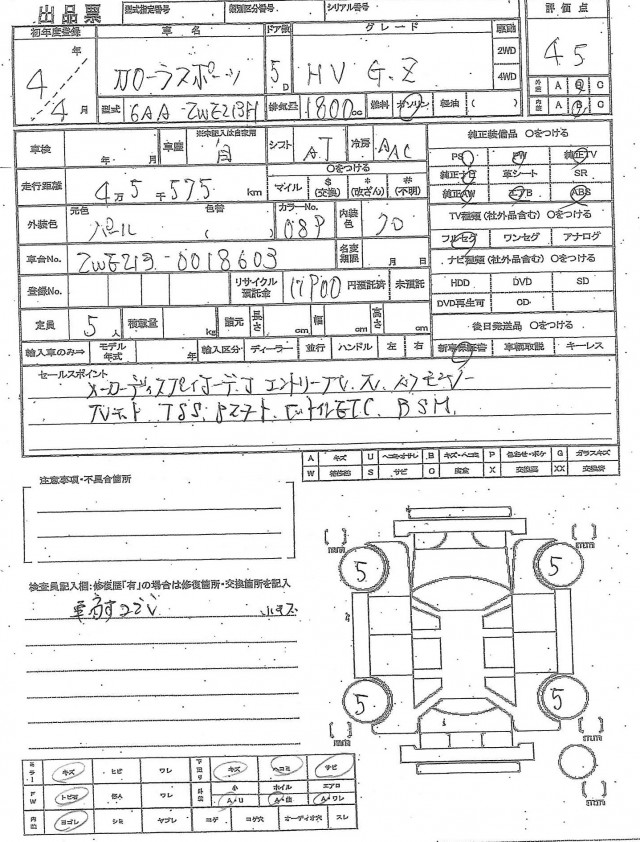 出品票 型式指定番号 類別区分番号 シリアル番号
初年度登録 車名 ドア数 グレード 駆動 評価点
4年 カローラスポーツ 5D HV G.Z 2WD 4.5
4月 4WD 外装 A B C
型式 6AA-ZWE213H 排気量 1800cc 燃料 ガソリン・軽油・( ) 内装 A B C
車検 年 月 車歴 ※未記入は自家用 自 シフト AT 冷房 AAC 純正装備品 ○をつける
PS PW 純正TV
純正ナビ 革シート SR
純正AW エアB ABS
走行距離 4万5千575km ○をつける マイル $(交換) *(改ざん) #(不明)
TV種類(社外品含む) ○をつける
外装色 元色 パール 色替( ) カラーNo. 089 内装色 クロ
フルセグ ワンセグ アナログ
車台No. ZWE213-0018603 名変期限 月 日
ナビ種類(社外品含む) ○をつける
登録No. リサイクル預託金 円預託済 未預託
HDD DVD SD
DVD再生可 CD
定員 5人 積載量 kg 諸元 長さ cm 幅 cm 高さ cm
後日発送品 ○をつける
輸入車のみ⇒ モデル年式 年 輸入区分・ディーラー・並行 ハンドル 左・右
新車保証書 車輌取説 キーレス
セールスポイント
メーカーディスプレイオーディオ
TSS. ETC. BSM.
A キズ U ヘコミ・オサレ B キズ・ヘコミ P 色あせ・ボケ G ガラスキズ
W 補修跡 S サビ C 腐食 X 交換要 XX 交換済
注意事項・不具合箇所
検査員記入欄:修復歴「有」の場合は修復箇所・交換箇所を記入
5 5
5 5
ミラー キズ ヒビ ワレ 下回り キズ ヘコミ サビ
FW トビ石 ワレ 外装 小 A・U ホイル エアロ A・ワレ
内装 ヨゴレ シミ ヤブレ コゲ コゲ穴 オーディオ穴 スレ